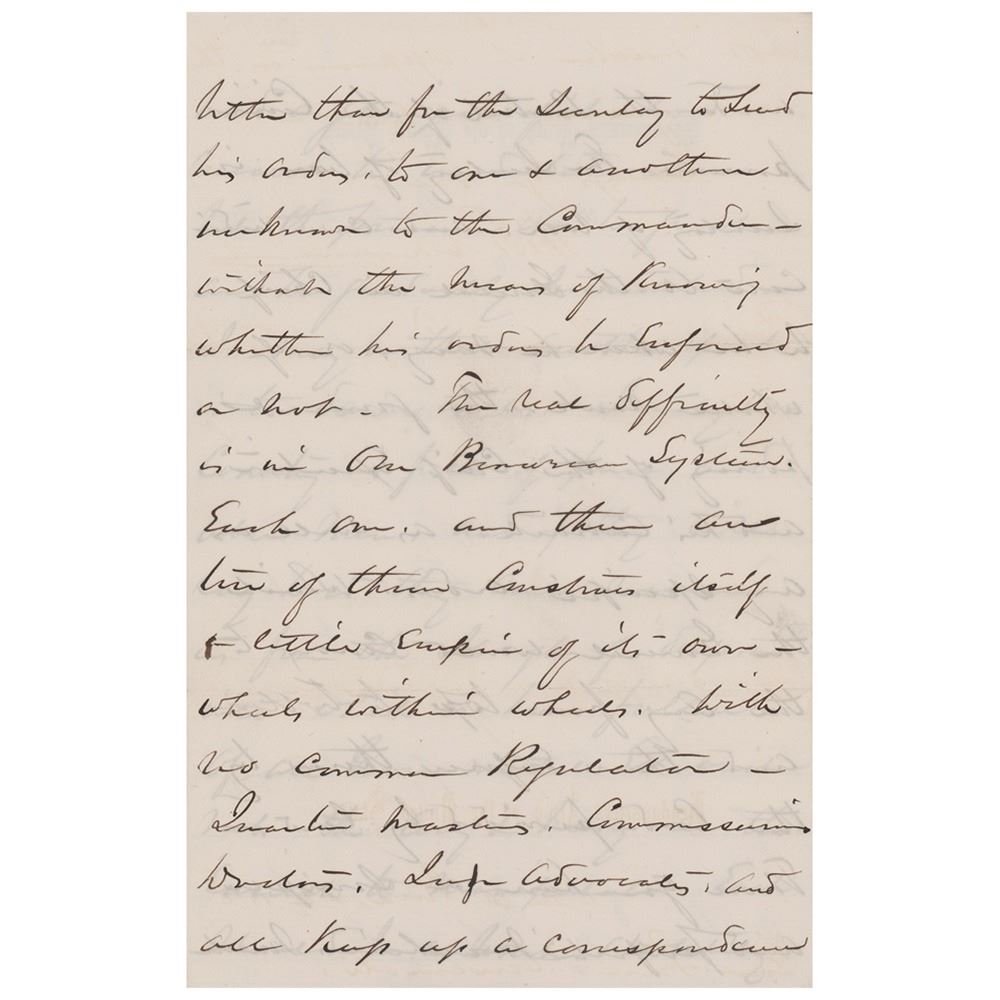 better than for the Secretary to Send
his orders, to one & another
unknown to the Commander -
without the means of Knowing
whether his orders be Enforced
or not - The real difficulty
is in Our Bureau System.
Each one, and there are
ten of them Construes itself
a little Empire of its own -
wheels within wheels. With
no common Regulator -
Quarter Masters, Commissaries
Doctors, Judge Advocates, and
all Keep up a correspondence